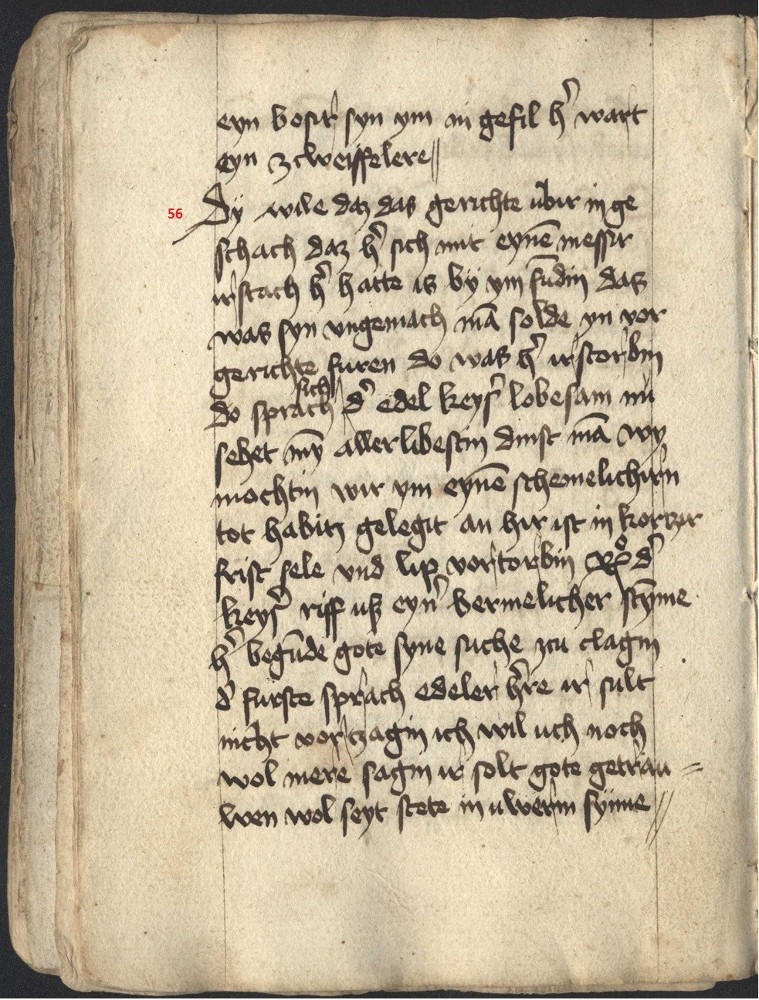 eyn bosir syn ym in gefil h̛ wart
eyn zcweiffelere //
56
Dy wile daz das gerichte ubir in ge
schach daz h̛ sich mit eynē messir
irstach h̛ hatte is by ym fūdin das
was syn ungemach mā solde yn vor
gerichte furen do was h̛ irstorbin
sich
do sprach d̛ edel keys̛ lobesam nu
sehet my̅ allerlibestin dinst mā wy
mochtin wir ym eynē schemelichirn
tot habin gelegit an hir ist in kortzir
frist sele vnd lip vortorbin d̛
keys̛ riff uß eyn̛ bermelicher sty̅me
h̛ begūde gote syne suche zcu clagin
d̛ furste sprach edeler h̛re ir sult
nicht vortzagin ich wil uch noch
wol mere sagin ir solt gote getrau =
wen wol seyt stete in uwerm synne //